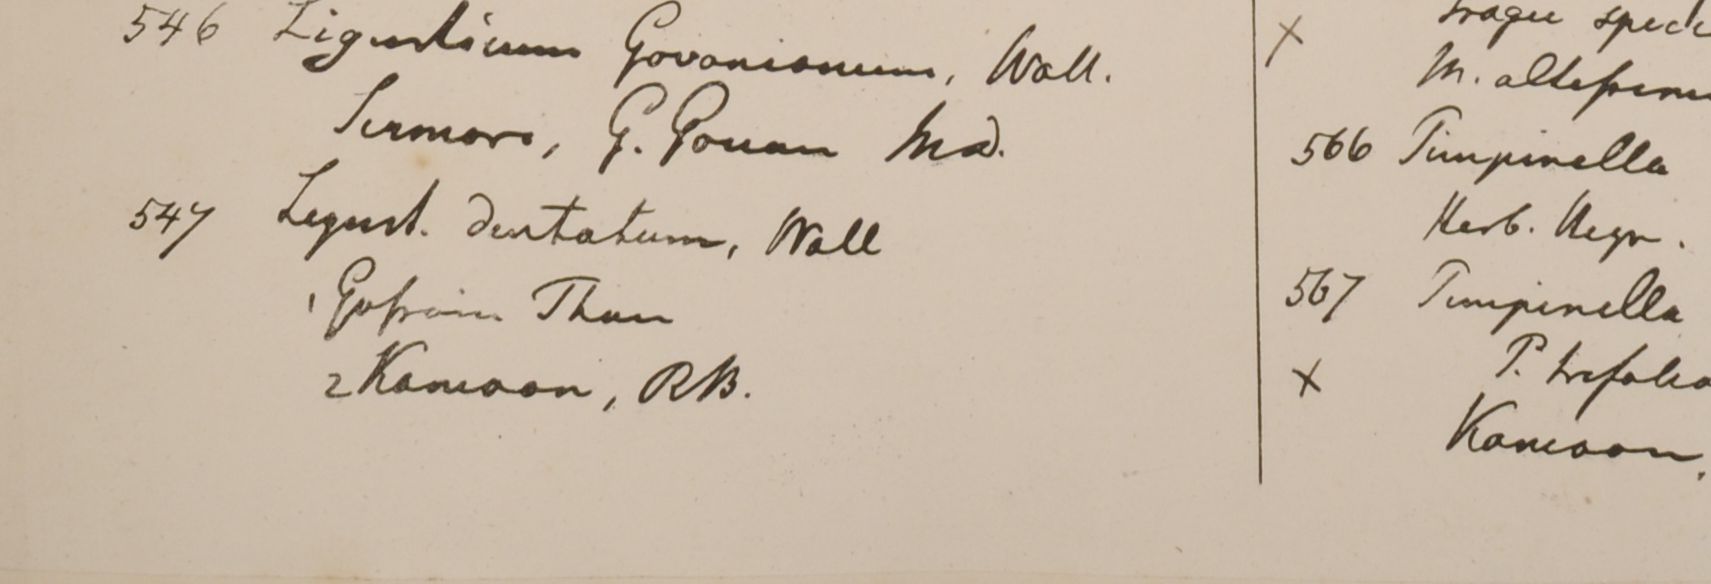 546 Ligusticum Govanianum, Wall.
Sirmore, G. Govan Md.
547 Ligust. dentatum, Wall
1 Gossain Than
2 Kamaon, RB.
speci
x
M. altissima
566 Pimpinella
Herb. Heyn.
567 Pimpinella
x P. trifolia
Kamaon,